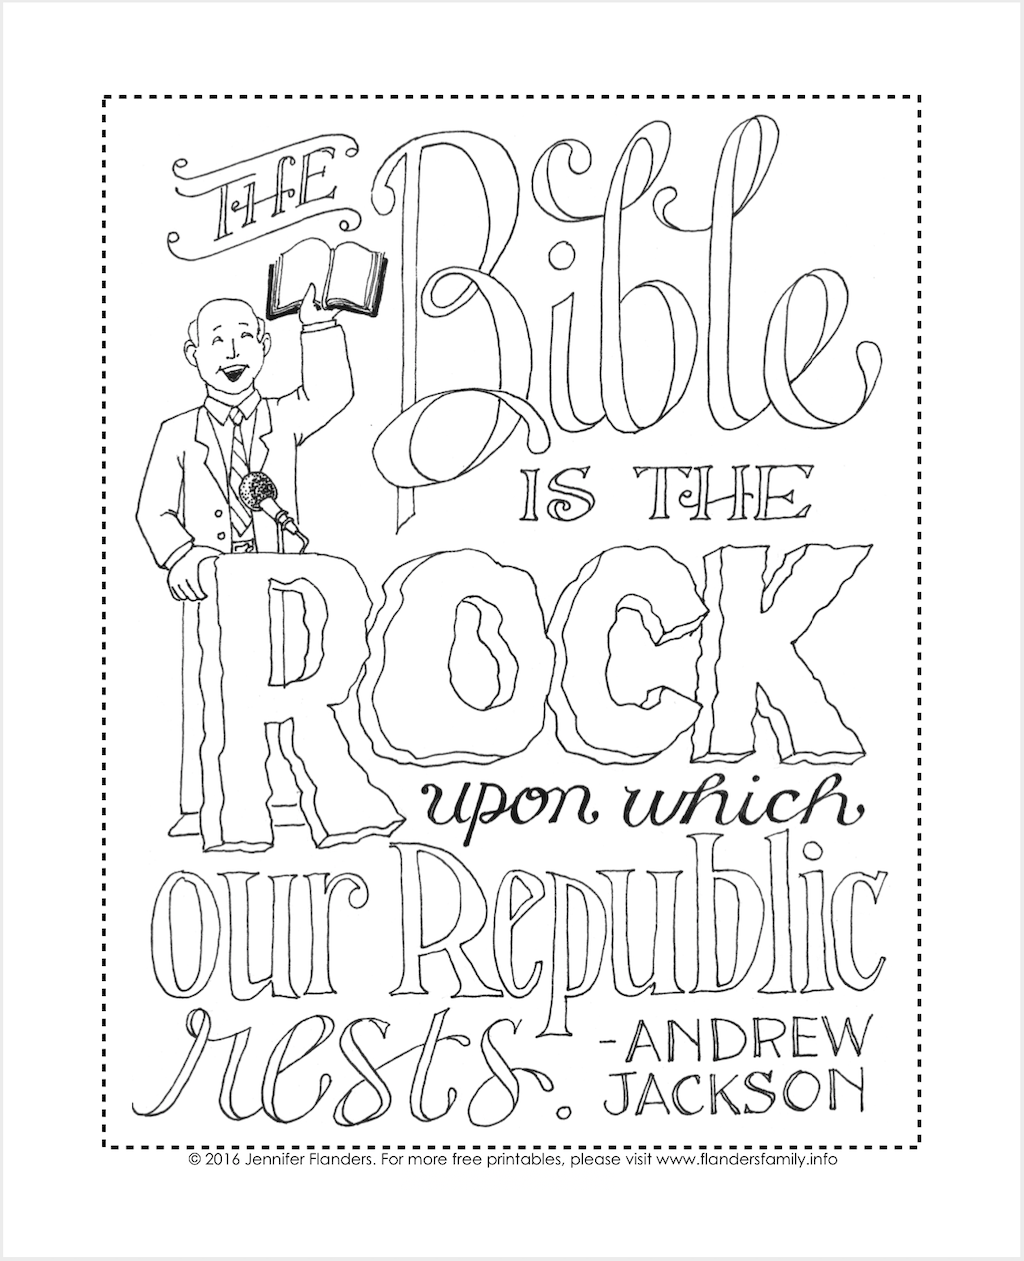 THE Bible
IS THE
ROCK
upon which
our Republic
rests. -ANDREW
JACKSON
© 2016 Jennifer Flanders. For more free printables, please visit www.flandersfamily.info